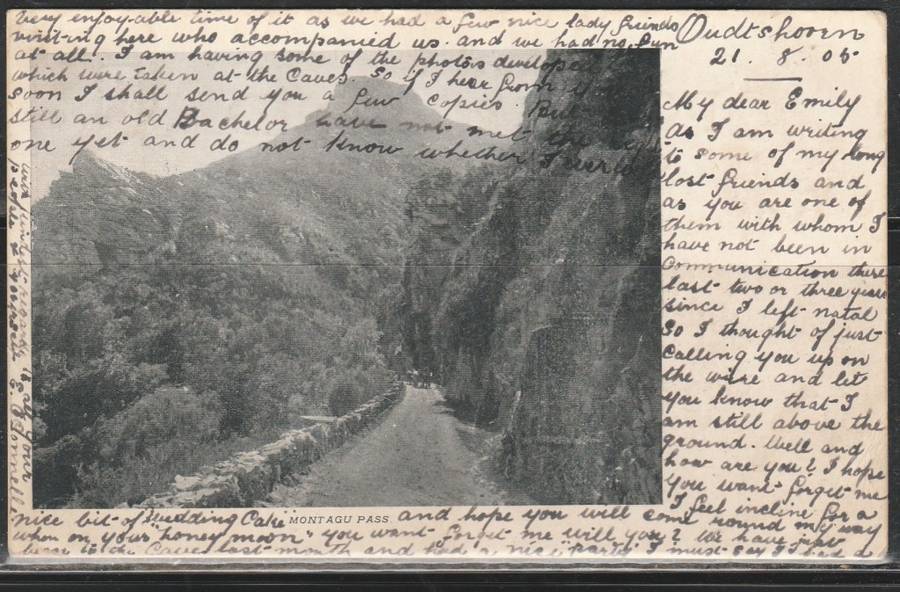 Oudtshoorn
21. 8. 05
My dear Emily
as I am writing
to some of my long
lost friends and
as you are one of
them with whom I
have not been in
Communication these
last two or three years
since I left natal
So I thought of just
Calling you up on
the wire and let
you know that I
am still above the
ground. Well and
how are you? I hope
you want forget me
I feel incline for a
nice bit of Wedding Cake
MONTAGU PASS
and hope you will come round my way
when on your honey moon" you want forget me will you? We have just
been to the Caves last month and had a nice party I must say I had a
very enjoy-able time of it as we had a few nice lady friends
visiting here who accompanied us. and we had no fun
at all!. I am having some of the photos developed
which were taken at the Caves. So if I hear from you
soon I shall send you a few copies. But
still an old Bachelor have not met the right
one yet and do not know whether I ever
with kindest regards to all your
people & yourself